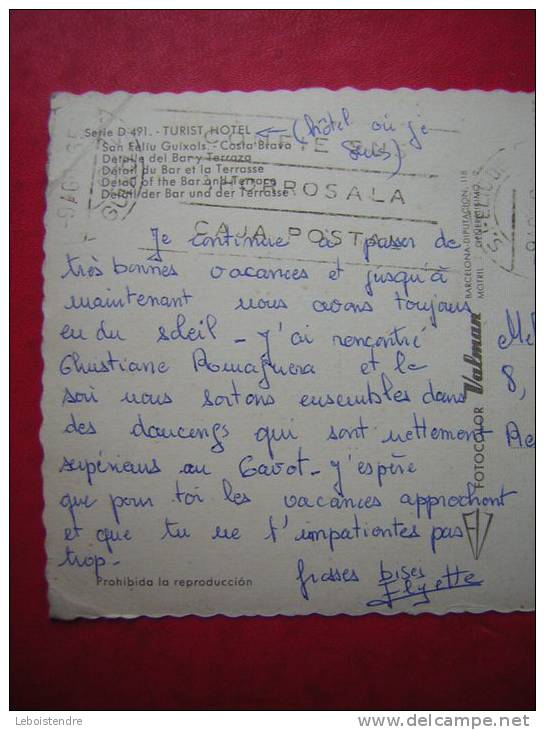 Serie D-491. - TURIST HOTEL ← (hôtel où je
suis)
San Feliu Guixols. - Costa Brava
Detalle del Bar y Terraza
Détail du Bar et la Terrasse
Detail of the Bar and Terrace
Detail der Bar und der Terrasse
CAJA POSTAL
Je continue à passer de
très bonnes vacances et jusqu'à
maintenant nous avons toujours
eu du soleil - J'ai rencontré
Christiane Romaguera et le
soir nous sortons ensembles dans
des dancings qui sont nettement
supérieurs au Gavot - J'espère
que pour toi les vacances approchent
et que tu ne t'impatientes pas
trop -
grosses bises
Elyette
Prohibida la reproducción
FOTOCOLOR Valman
BARCELONA-DIPUTACION, 118
MOTRIL
Mel
8,
Leboistendre
©delcampe.net